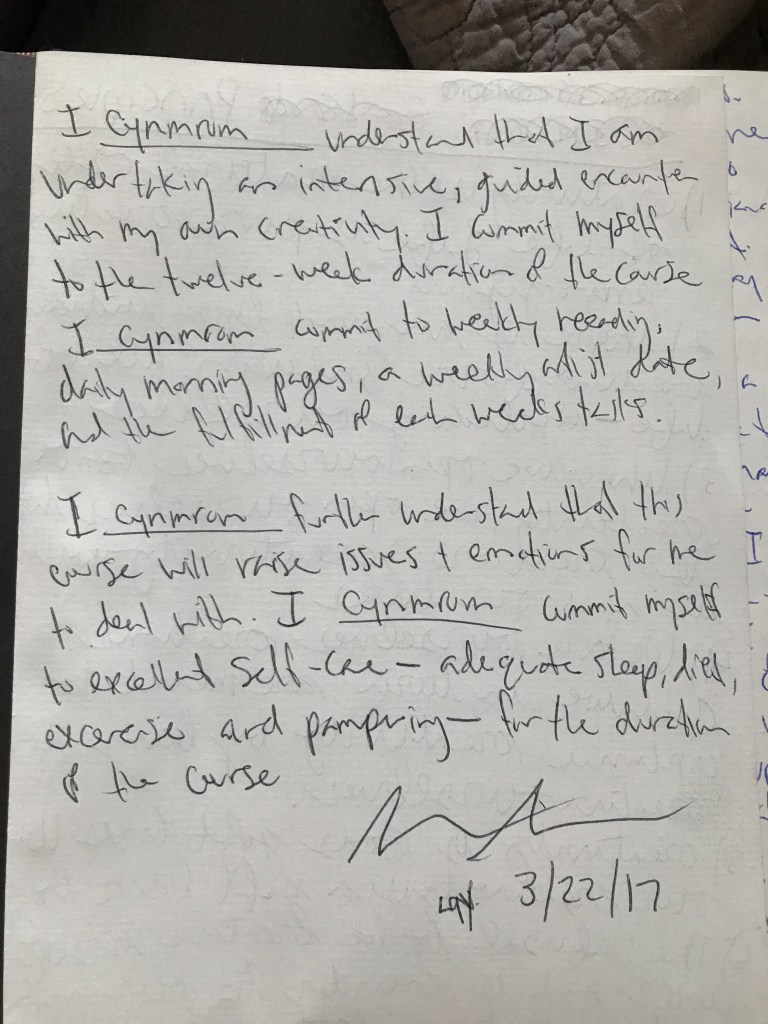 I Cynmrum understand that I am
undertaking an intensive, guided encounter
with my own creativity. I commit myself
to the twelve-week duration of the course
I Cynmrom commit to weekly reeading,
daily morning pages, a weekly artist date,
and the fulfillment of each weeks tasks.
I Cynmrom further understand that this
course will raise issues + emotions for me
to deal with. I Cynmrum commit myself
to excellent self-care – adequate sleep, diet,
excercise and pampering – for the duration
of the course
3/22/17